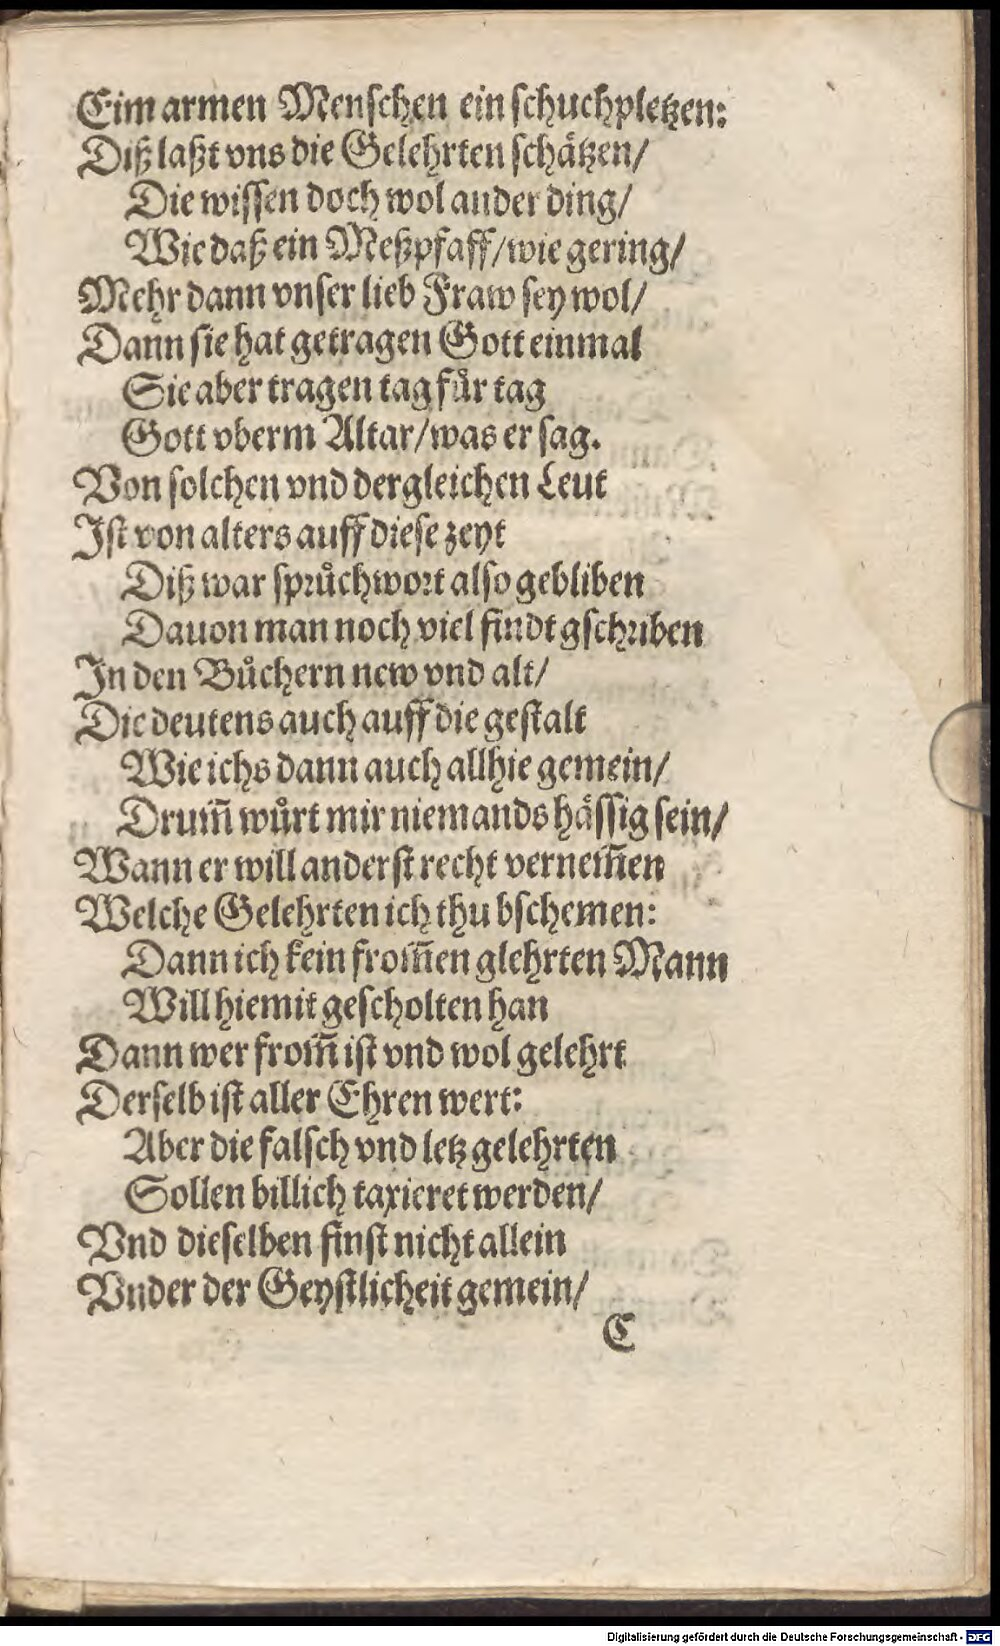 Eim armen Menschen ein schuchpletzen:
Diß laßt vns die Gelehrten schåtzen/
Die wissen doch wol ander ding/
Wie daß ein Meßpfaff/wie gering/
Mehr dann vnser lieb Fraw sey wol/
Dann sie hat getragen Gott einmal
Sie aber tragen tag fůr tag
Gott vberm Altar/was er sag.
Von solchen vnd dergleichen Leut
Ist von alters auff diese zeyt
Diß war sprůchwort also gebliben
Dauon man noch viel findt gschriben
In den Bůchern new vnd alt/
Die deutens auch auff die gestalt
Wie ichs dann auch allhie gemein/
Drum̃ wůrt mir niemands håssig sein/
Wann er will anderst recht vernem̃en
Welche Gelehrten ich thu bschemen:
Dann ich kein from̃en glehrten Mann
Will hiemit gescholten han
Dann wer from̃ ist vnd wol gelehrt
Derselb ist aller Ehren wert:
Aber die falsch vnd letz gelehrten
Sollen billich taxieret werden/
Vnd dieselben finst nicht allein
Vnder der Geystlicheit gemein/
C
Digitalisierung gefördert durch die Deutsche Forschungsgemeinschaft - DFG